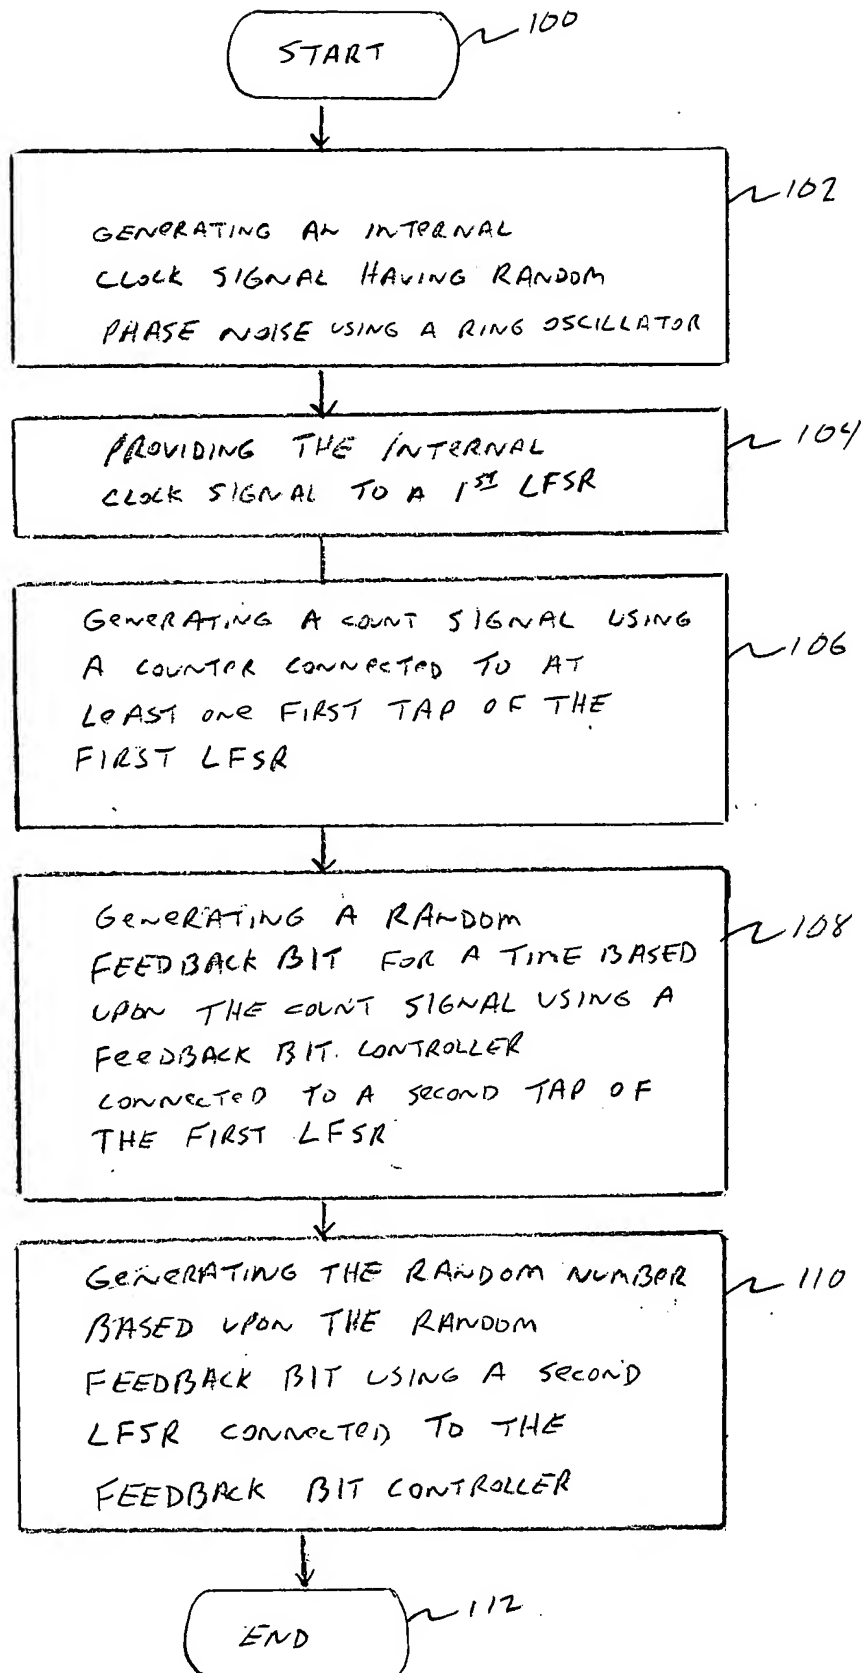 START
100
102
GENERATING AN INTERNAL
CLOCK SIGNAL HAVING RANDOM
PHASE NOISE USING A RING OSCILLATOR
104
PROVIDING THE INTERNAL
CLOCK SIGNAL TO A 1ST LFSR
106
GENERATING A COUNT SIGNAL USING
A COUNTER CONNECTED TO AT
LEAST ONE FIRST TAP OF THE
FIRST LFSR
108
GENERATING A RANDOM
FEEDBACK BIT FOR A TIME BASED
UPON THE COUNT SIGNAL USING A
FEEDBACK BIT. CONTROLLER
CONNECTED TO A SECOND TAP OF
THE FIRST LFSR
110
GENERATING THE RANDOM NUMBER
BASED UPON THE RANDOM
FEEDBACK BIT USING A SECOND
LFSR CONNECTED TO THE
FEEDBACK BIT CONTROLLER
112
END